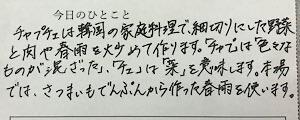 今日のひとこと
チャプチェは韓国の家庭料理で、細切りにした野菜
と肉や春雨を炒めて作ります。「チャプ」は「色々な
ものが混ざった」、「チェ」は「菜」を意味します。本場
では、さつまいもでんぷんから作った春雨を使います。